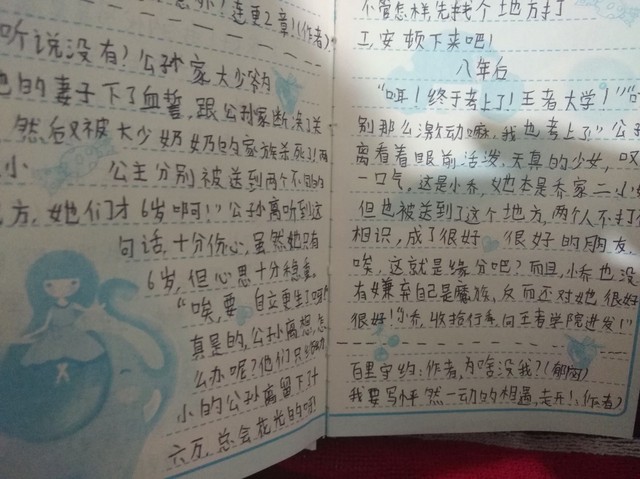 连更2章!(作者)
听说没有?公孙家大少爷为
的妻子下了血誓,跟公孙家断涤了关
然后又被大少奶奶的家族杀死了!两
小 公主分别被送到两个不同的
方,她们才6岁啊!”公孙离听到这
句话,十分伤心,虽然她只有
6岁,但心思十分稳重。
“唉,要自立更生了吗?
真是的,公孙离想,怎
么办呢?他们只给
小的公孙离留下计
六万,总会花光的呀!
不管怎样,先找个地方打
工,安顿下来吧!
八年后
“咡!终于考上了!王者大学!”
别那么激动嘛,我也考上了”公
离看着眼前活泼、天真的少女,叹
一口气,这是小乔,她本是乔家二小
但也被送到了这个地方,两个人不打
相识,成了很好、很好的朋友,
唉,这就是缘分吧?而且,小乔也没
有嫌弃自己是魔族,反而还对她很好
很好!“小乔,收拾行李,向王者学院进发!”
百里守约:作者,为啥没我?(郁闷)
我要写怦然一动的相遇,走开!(作者)